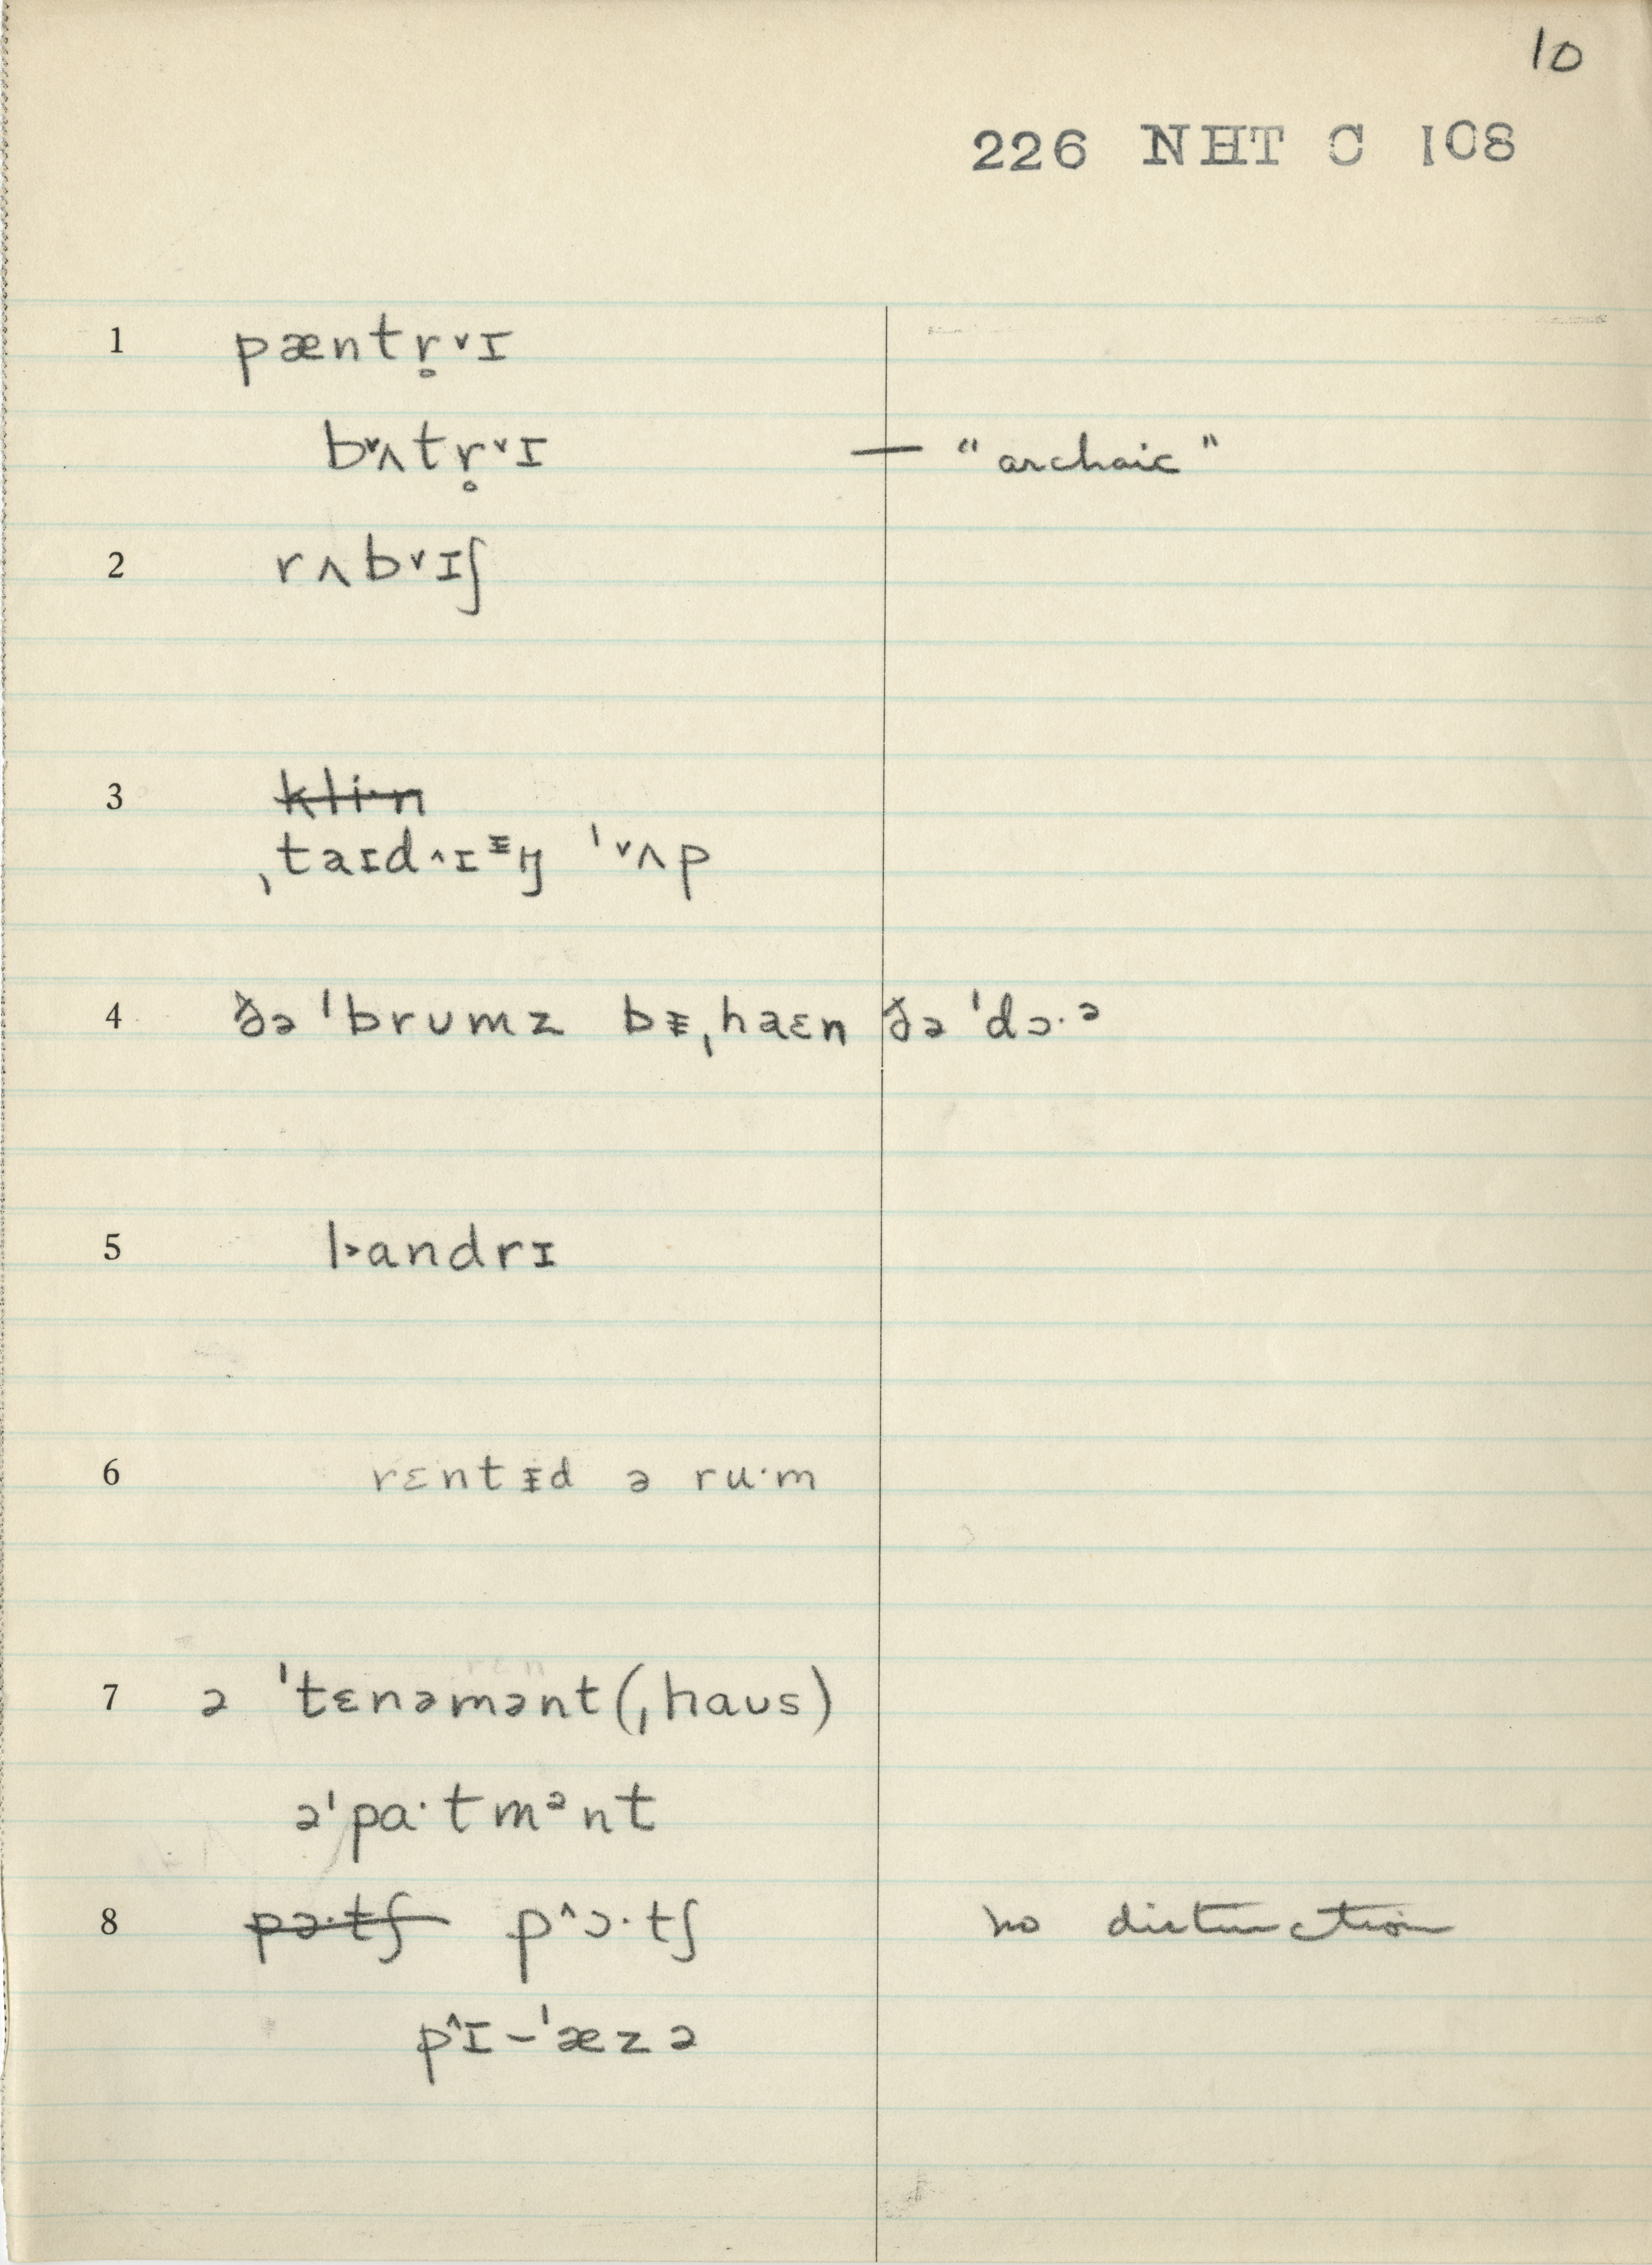 10
226 NHT C 108
1 pæntr̥˅ɪ
b˅ʌtr̥˅ɪ — "archaic"
2 rʌb˅ɪʃ
3 ~~kli·n~~
ˌtaɪd˄ɪᵻŋ ˈ˅ʌp
4 ðə ˈbrumz bᵻˌhaɛn ðə ˈdɔ·ᵊ
5 l˃andrɪ
6 rɛntᵻd ə ru·m
7 ə ˈtɛnəmənt(ˌhaʊs)
əˈpa·tmᵊnt
8 ~~pɔ·tʃ~~ p˄ɔ·tʃ no distinction
p˄ɪ-ˈæzə